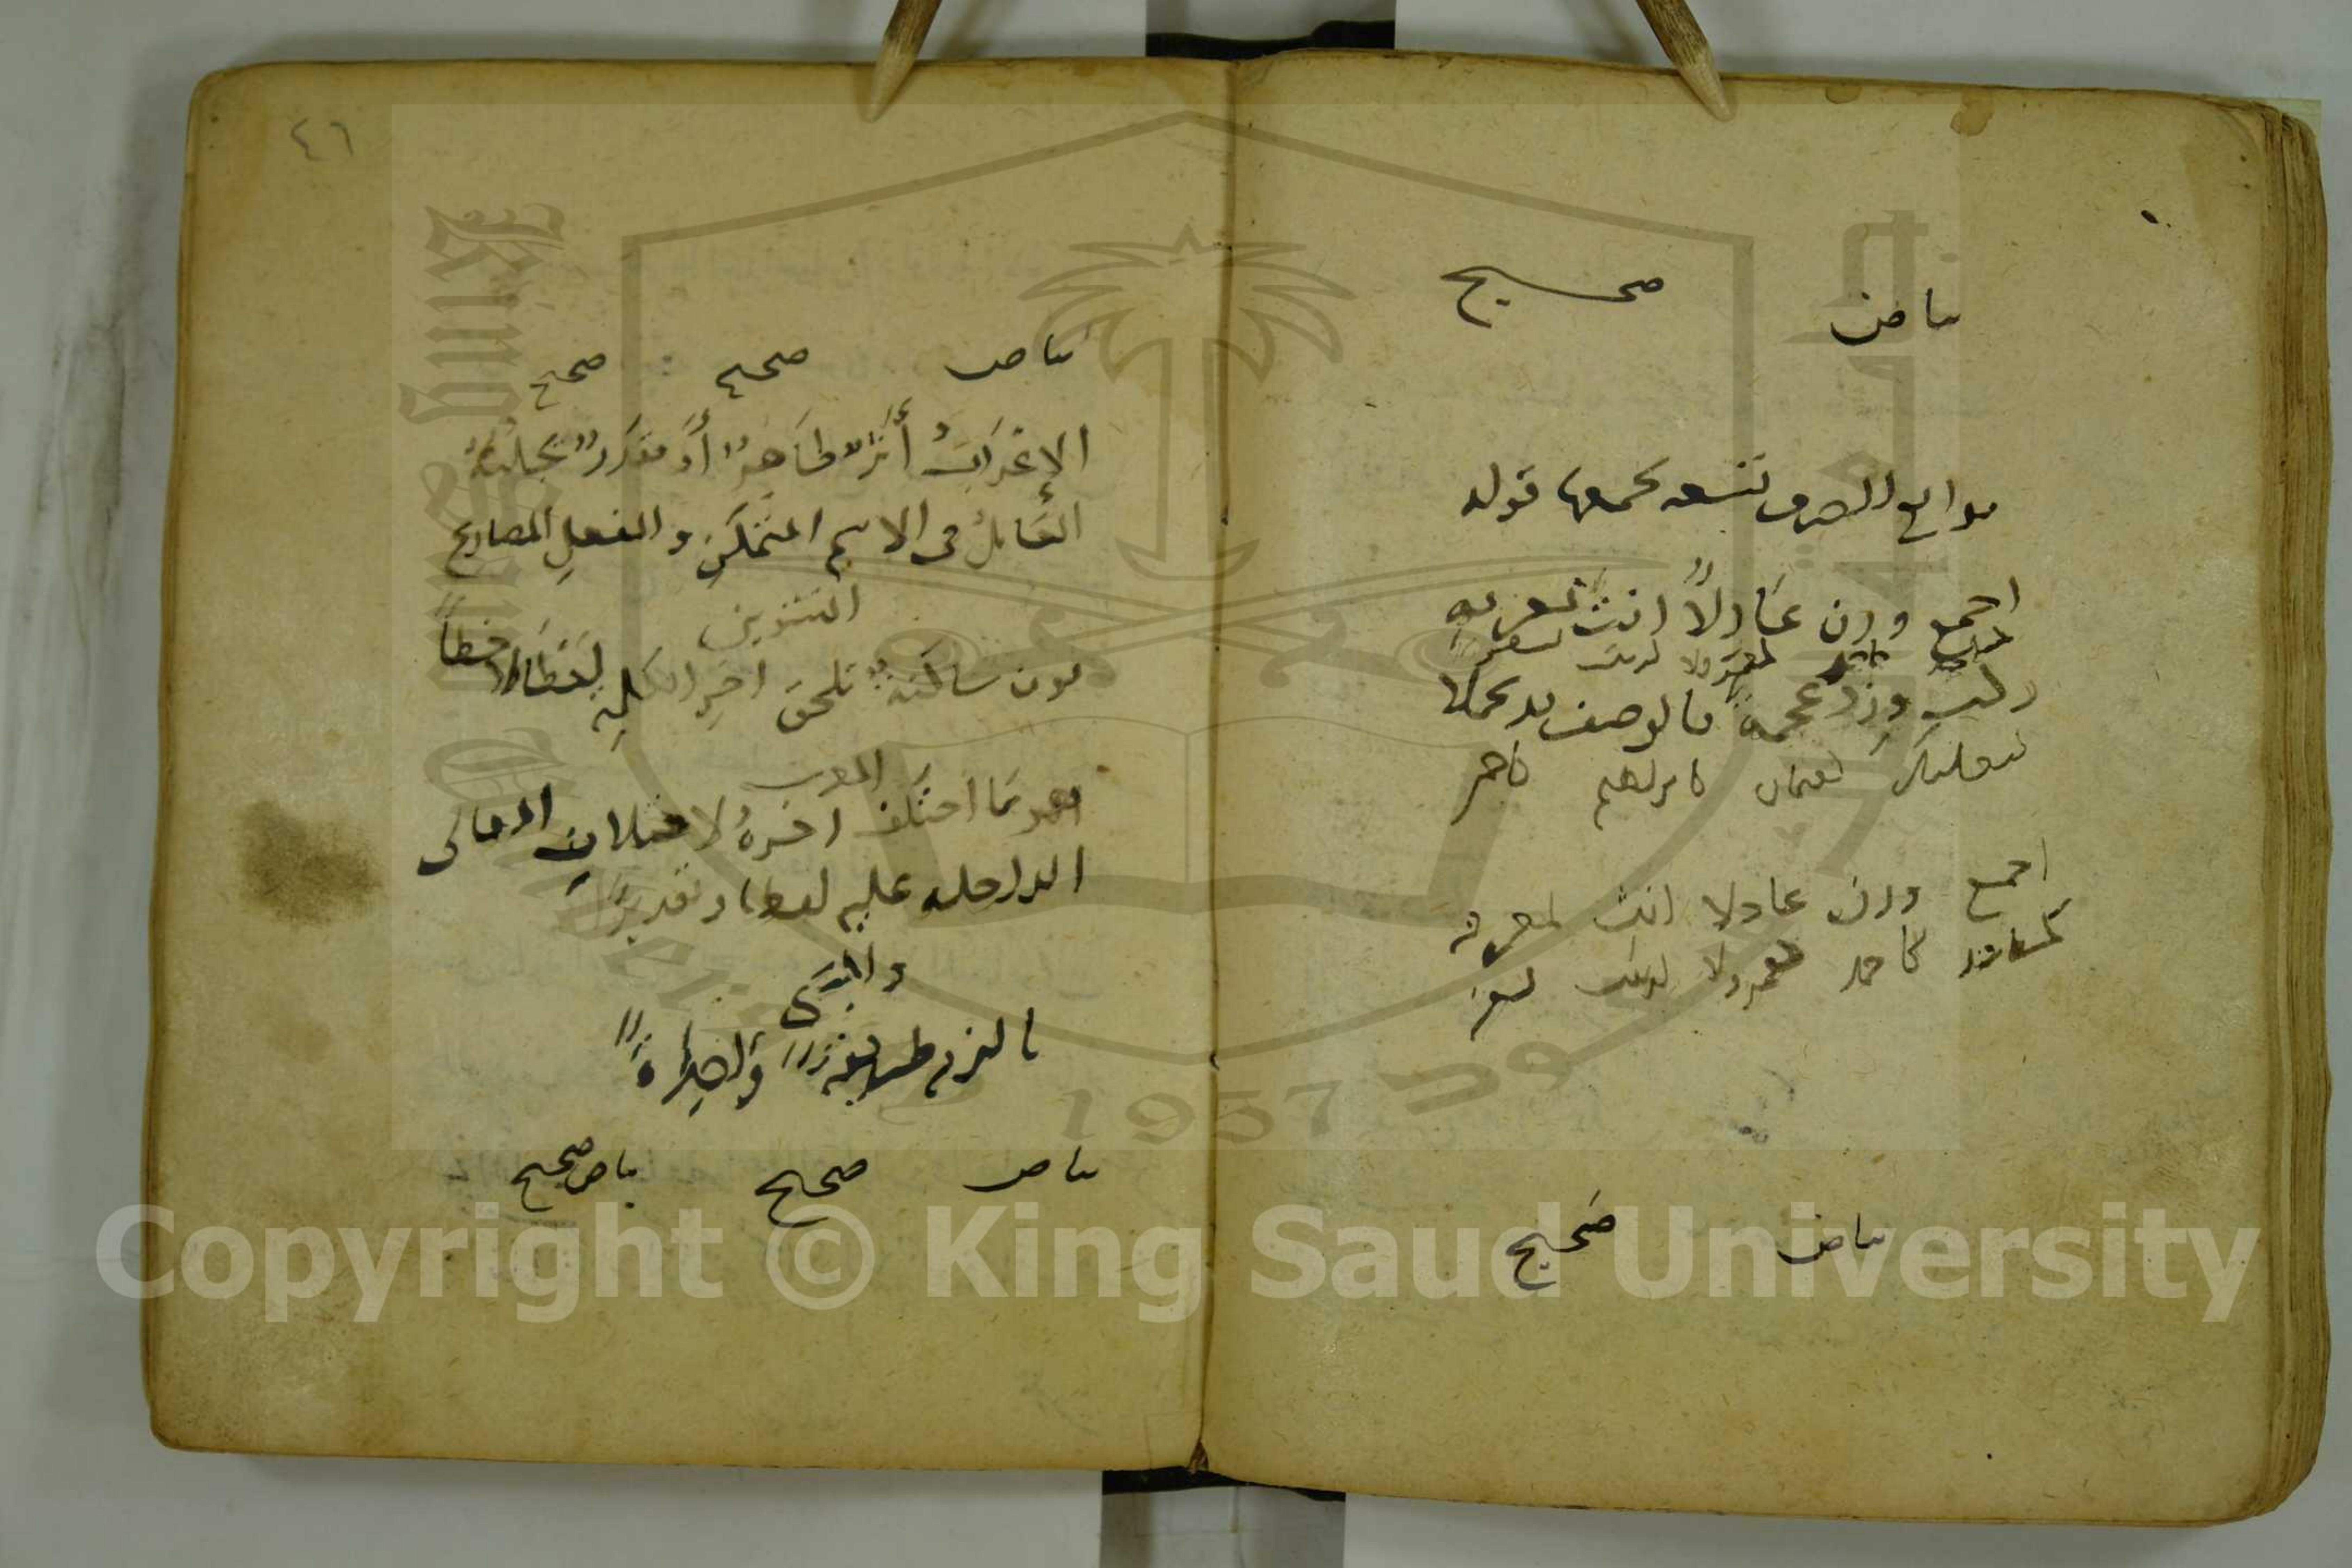 بياض صحيح
موانع الصرف تسعه يجمعها قوله
اجمع وزن عادلاً انث بمعرفه
كمساجد كاحمد كعمر ولا لزينب
ركب وزد عجمة فالوصف قد كملا
كبعلبك كعثمان كابرهيم كاحمر
اجمع وزن عادلا انث بمعرفه
كمساجد كاحمد كعمر ولا لزينب
بياض صحيح
٤٦
بياض صحيح صحيح
الإعْرَابُ أَثَرٌ ظَاهِرٌ أَوْ مقدَرٌ يَجلبُهُ
العَامِلُ في الاسم المتمَكِنِ والفعلِ المضارع
التنوين
نون ساكنةٌ تلحق اخِر الكلمِه لفظًا لا خطاً
المعرب
هو مَا اختلف اخرهُ لاختلافِ العوامل
الداخله عليه لفظا وتقديرًا
والمبنى
ما لزم طريقةً وَاحِدَةً
بياض صحيح بياض صحيح
Copyright © King Saud University
King Saud University
1957